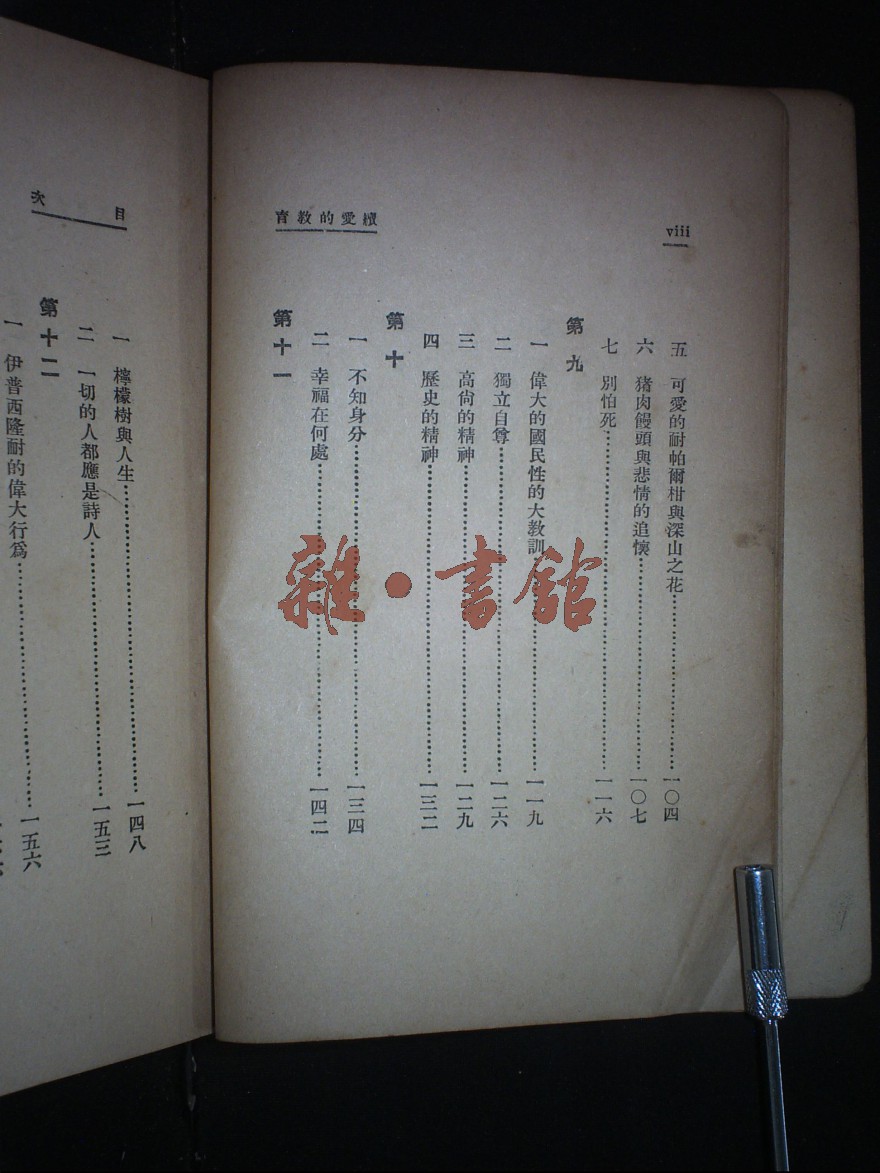 viii
育教的愛續
五　可愛的耐帕爾柑與深山之花…………一〇四
六　猪肉饅頭與悲情的追懷…………一〇七
七　別怕死…………一一六
第九
一　偉大的國民性的大教訓…………一一九
二　獨立自尊…………一二六
三　高尙的精神…………一二九
四　歷史的精神…………一三二
第十
一　不知身分…………一三四
二　幸福在何處…………一四二
第十一
目次
一　檸檬樹與人生…………一四八
二　一切的人都應是詩人…………一五三
第十二
一　伊普西隆耐的偉大行爲…………一五六
雜·書館